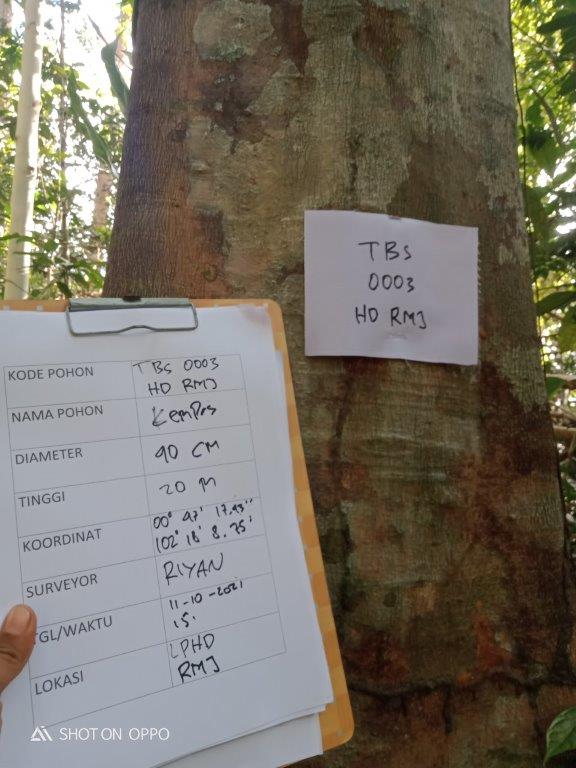 TBS
0003
HD RMJ
KODE POHON TBS 0003
HD RMJ
NAMA POHON Kempas
DIAMETER 90 CM
TINGGI 20 M
KOORDINAT 00° 47' 17.93''
102° 18' 8.75'
SURVEYOR RIYAN
TGL/WAKTU 11-10-2021
15.
LOKASI LPHD
RMJ
SHOT ON OPPO